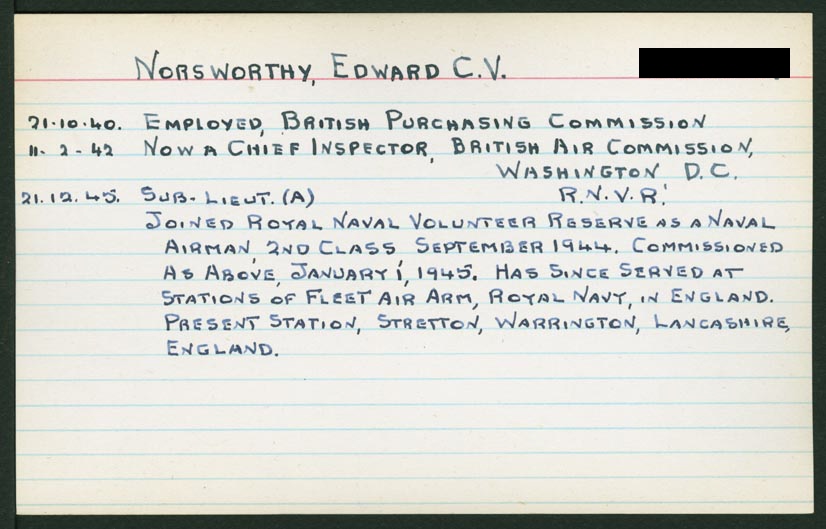 NORSWORTHY, EDWARD C.V.
21.10.40. EMPLOYED, BRITISH PURCHASING COMMISSION
11-2-42 NOW A CHIEF INSPECTOR, BRITISH AIR COMMISSION,
WASHINGTON D.C.
21.12.45. SUB-LIEUT. (A) R.N.V.R.
JOINED ROYAL NAVAL VOLUNTEER RESERVE AS A NAVAL
AIRMAN, 2ND CLASS SEPTEMBER 1944. COMMISSIONED
AS ABOVE, JANUARY 1, 1945. HAS SINCE SERVED AT
STATIONS OF FLEET AIR ARM, ROYAL NAVY, IN ENGLAND.
PRESENT STATION, STRETTON, WARRINGTON, LANCASHIRE,
ENGLAND.